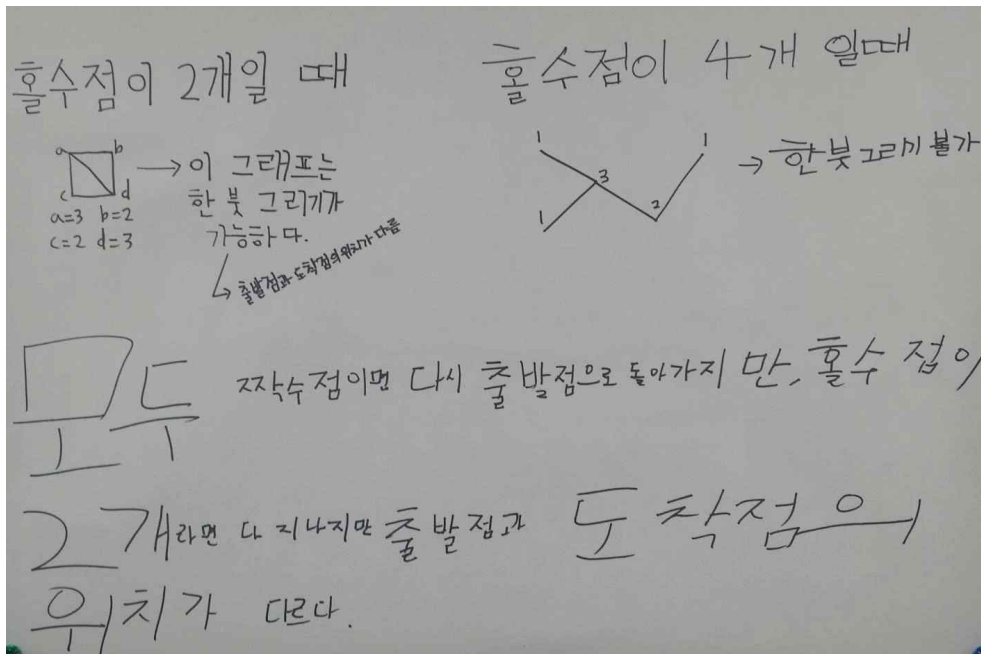 홀수점이 2개일 때
a b
c d
a=3 b=2
c=2 d=3
→ 이 그래프는
한 붓 그리기가
가능하다.
↳ 출발점과 도착점의 위치가 다름
홀수점이 4개 일때
1 1
3
1 2
→ 한붓그리기 불가
모두 짝수점이면 다시 출발점으로 돌아가지 만, 홀수 점이
2개라면 다 지나지만 출발점과 도착점의
위치가 다르다.